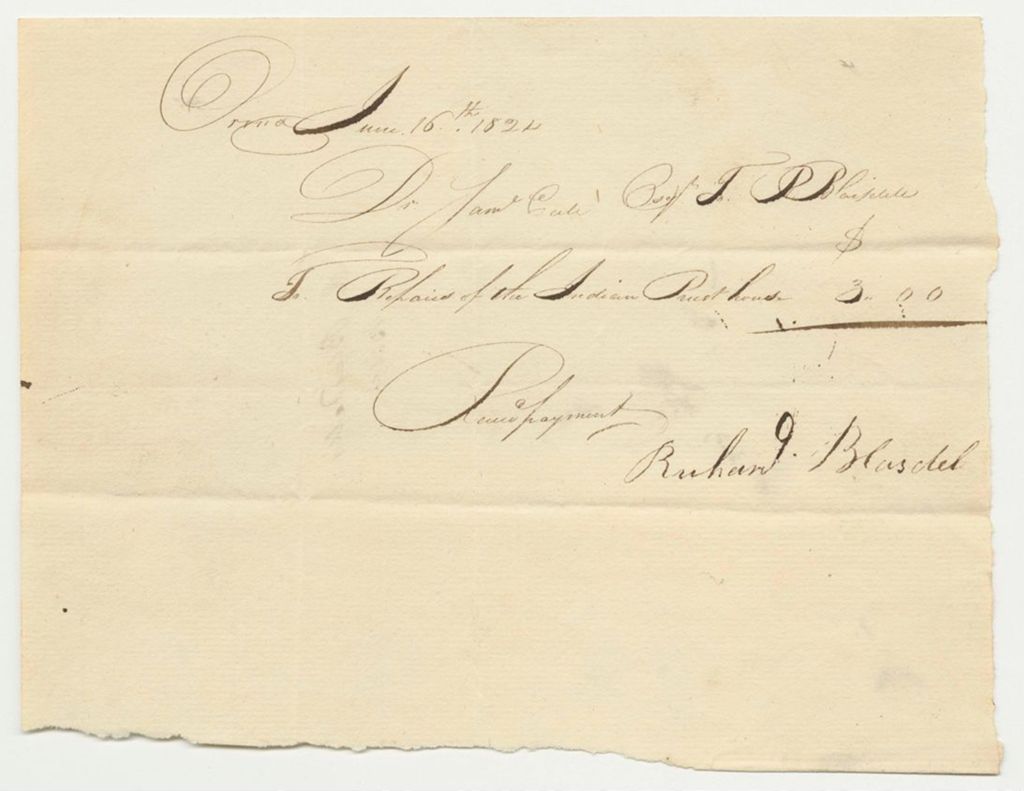 Orono June 16th. 1824
Dr Saml Call Esqr To R Blaisdele
$
To Repairs of the Indian Priest house 3.00
Recd payment
Richard Blasdel